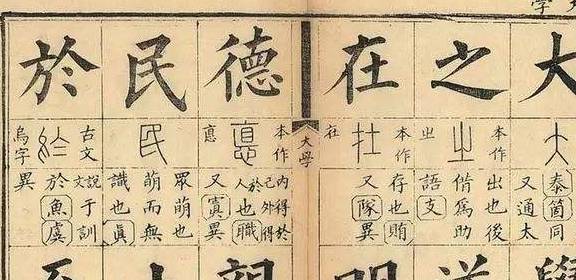 大
泰箇同
又通太
之
本作
㞢
出也後
借爲助
語支
在
本作
在
存也賄
又隊異
大學
德
本作
悳
內得於
己外得於
人也職
又寘異
民
眾萌也
萌而無
識也眞
於
古文
烏字
說文于訓
於魚虞
異